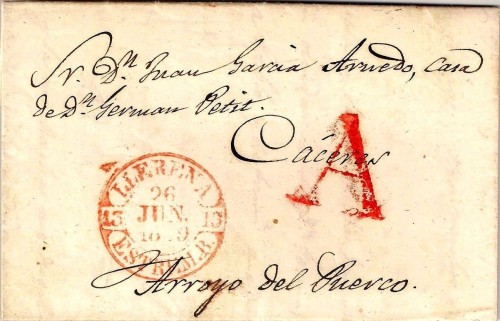 Sr. Dn. Juan Garcia Arnedo, casa
de Dn. German Petit.
Cáceres
A
LLERENA
26
JUN.
13 13
ESTREM.B.
Arroyo del Puerco.